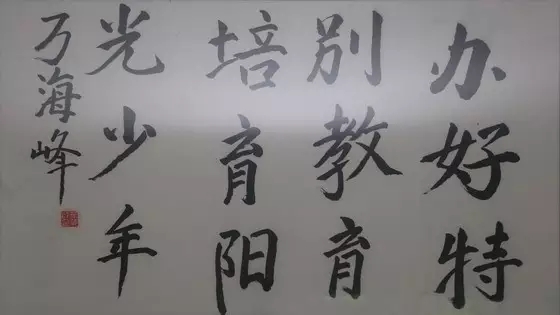 办好特
别教育
培育阳
光少年
万海峰